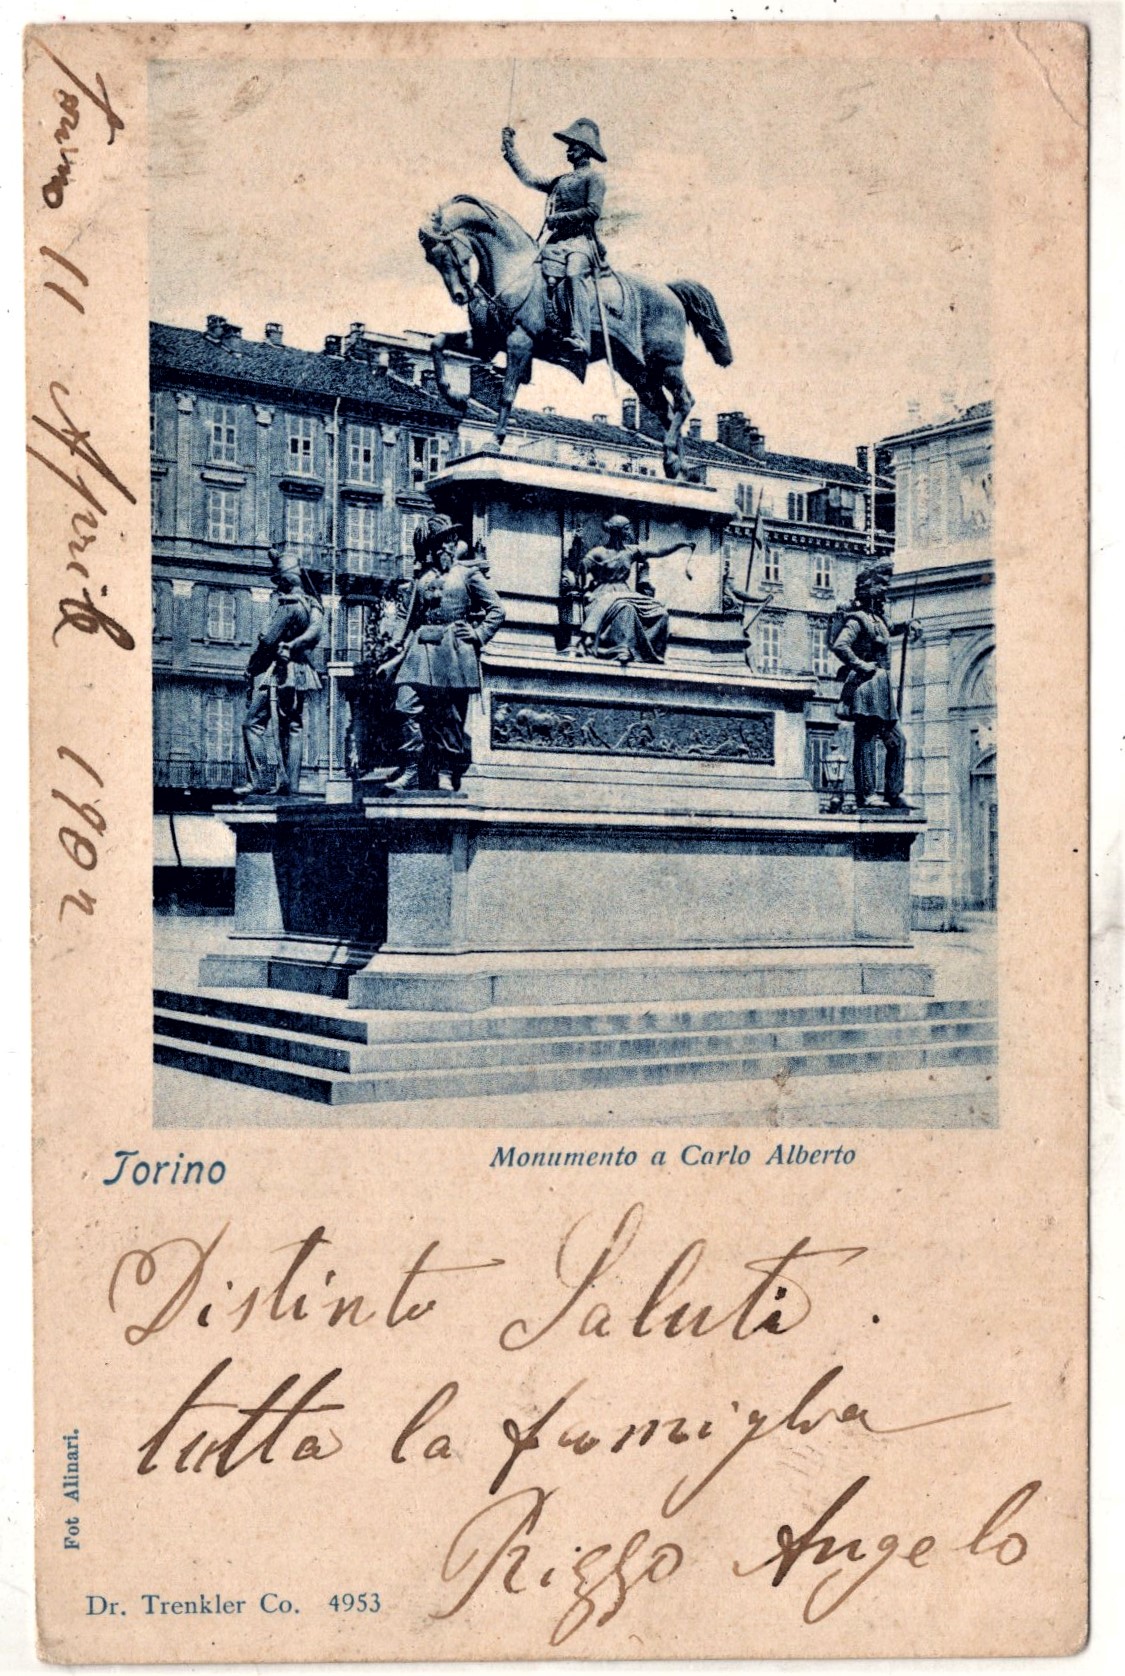 Torino 11 Aprile 190
Torino
Monumento a Carlo Alberto
Distinto Saluti.
tutta la famiglia
Rizzo Angelo
Fot Alinari.
Dr. Trenkler Co. 4953